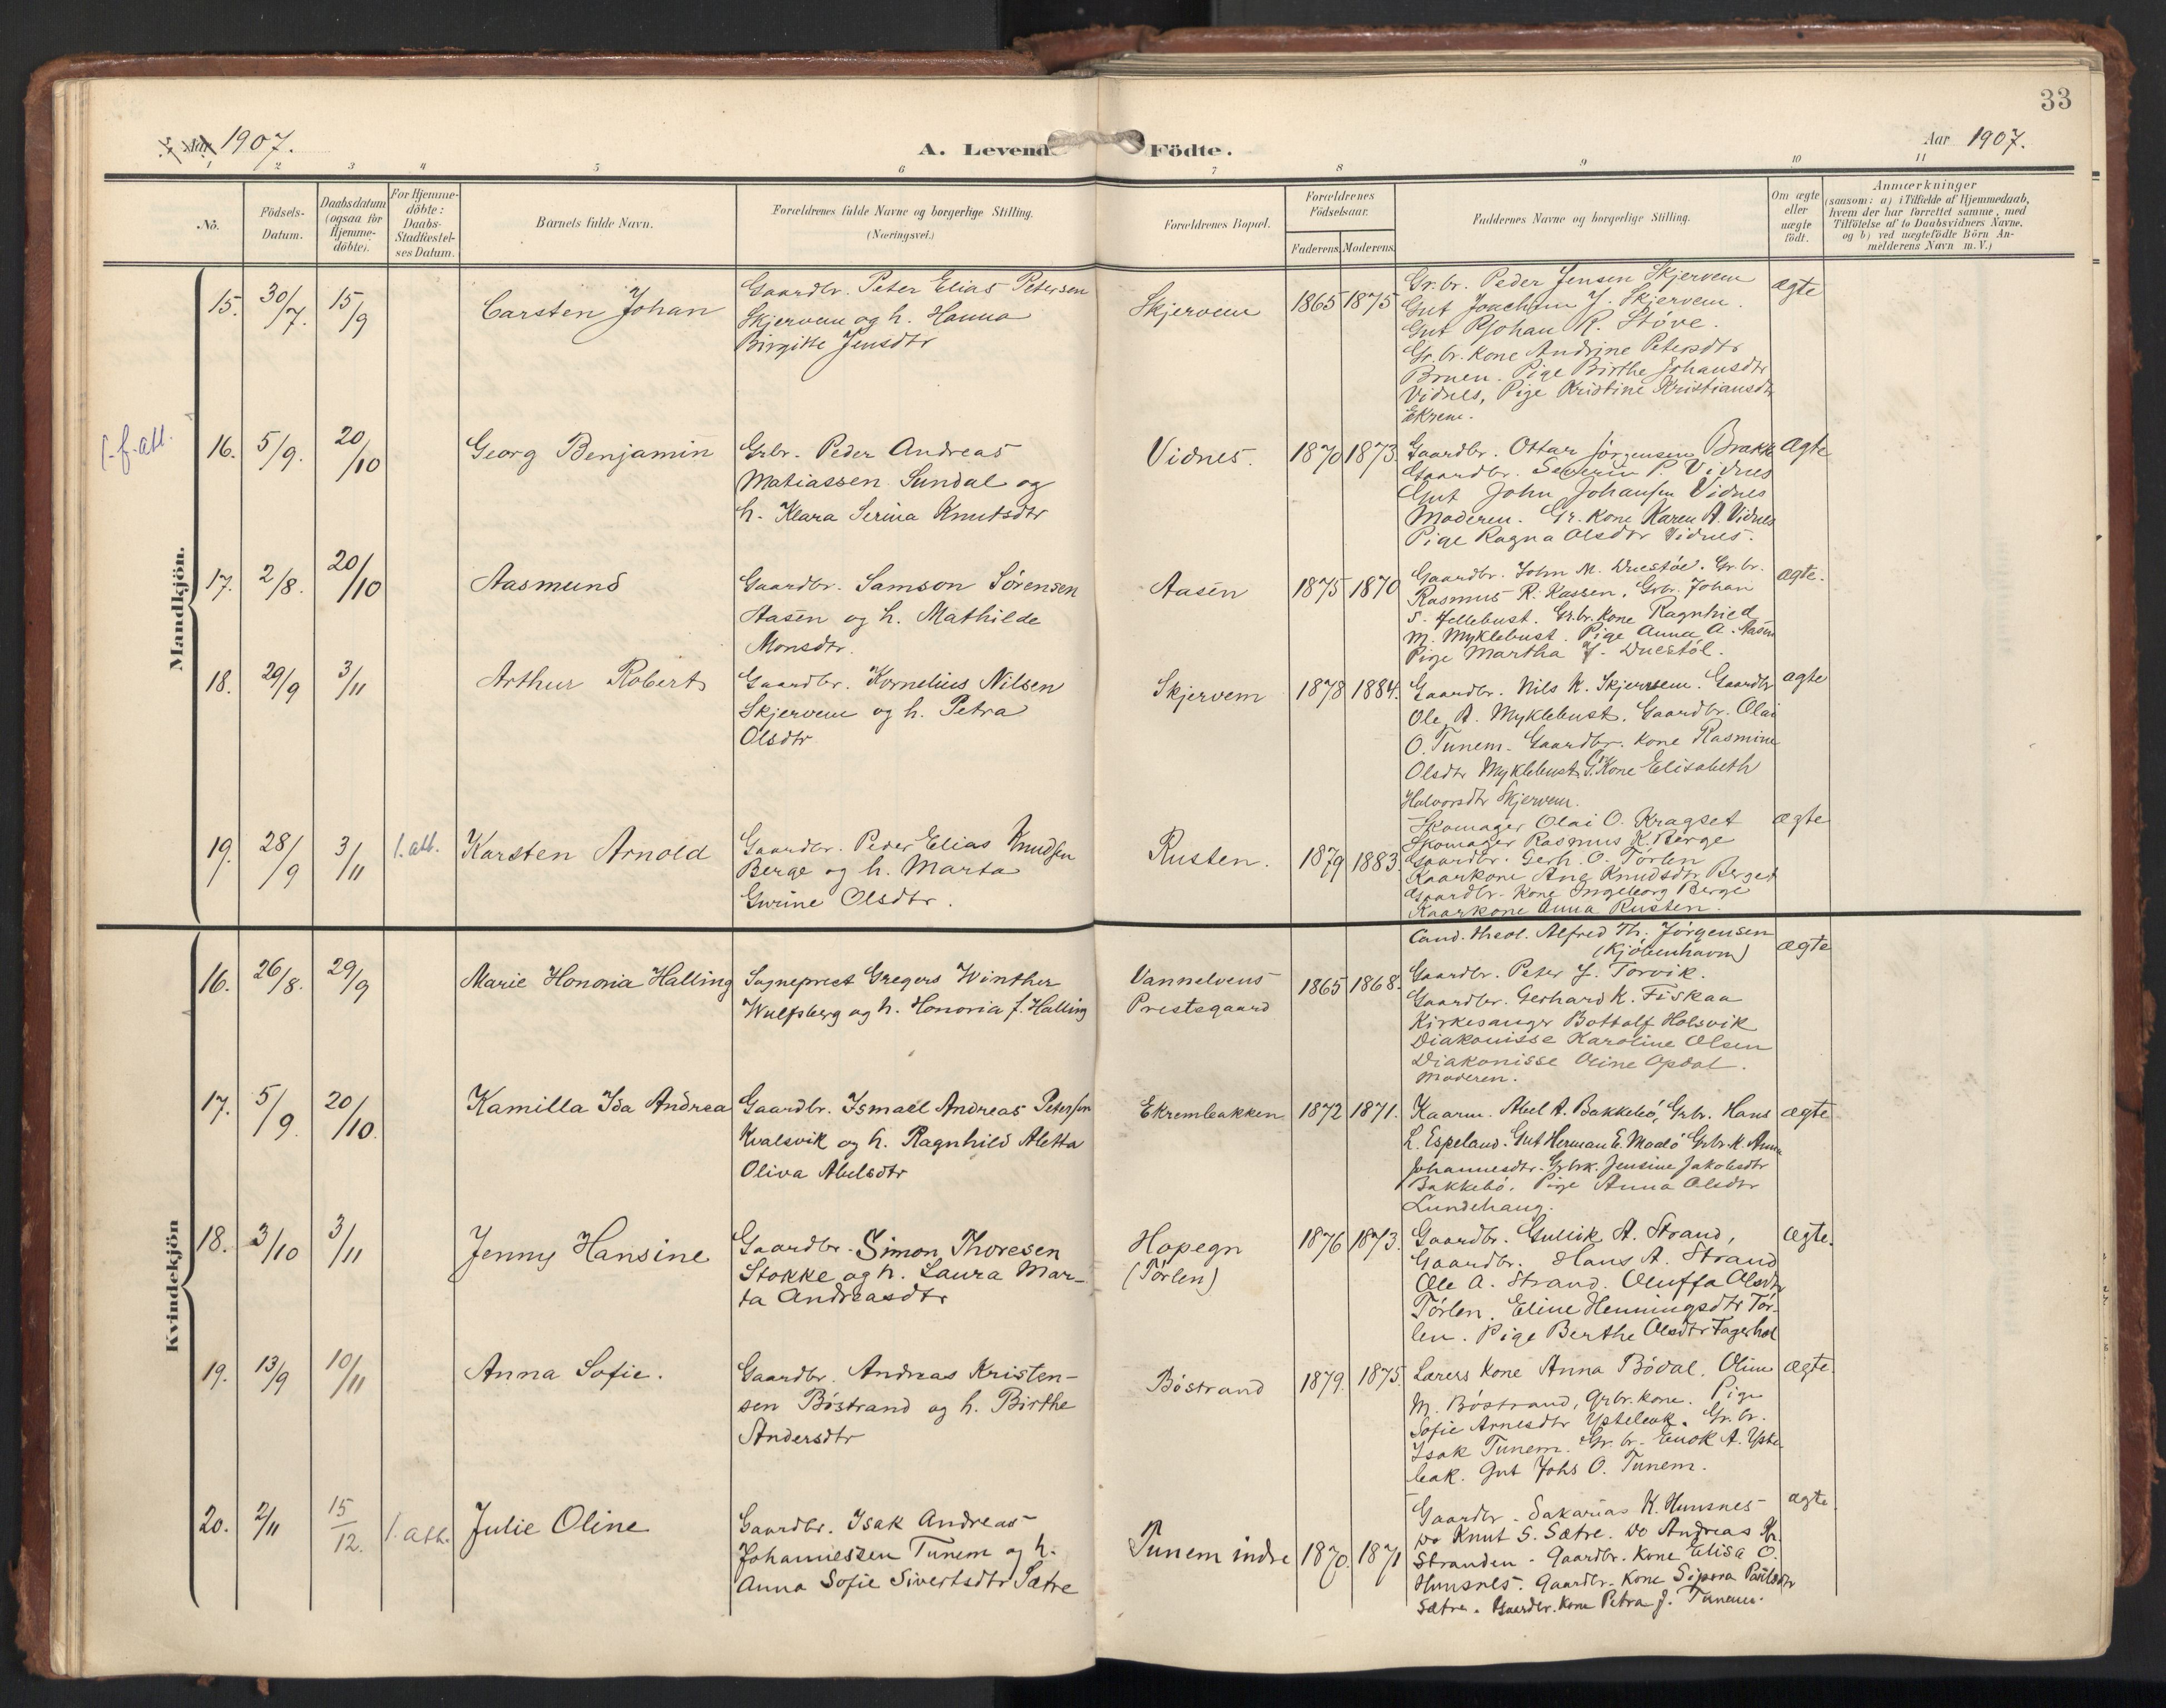 33
Aar 1907.
A. Levende Födte.
Aar 1907.
1 2 3 4 5 6 7 8 9 10 11
No.
Födsels-Datum.
Daabsdatum (ogsaa for Hjemme-döbte).
For Hjemme-döbte: Daabs-Stadfæstel-ses Datum.
Barnets fulde Navn.
Forældrenes fulde Navne og borgerlige Stilling. (Næringsvei.)
Forældrenes Bopæl.
Forældrenes Födselsaar.
Faderens. Moderens.
Faddernes Navne og borgerlige Stilling.
Om ægte eller uægte födt.
Anmærkninger
(saasom: a) i Tilfælde af Hjemmedaab,
hvem der har forrettet samme, med
Tilföielse af to Daabsvidners Navne,
og b) ved uægtefödte Börn An-
melderens Navn m.V.)
Mandkjön.
15. 30/7. 15/9 Carsten Johan
Gaardbr. Peter Elias Petersen
Skjervem og h. Hanna
Birgitte Jensdtr
Skjervem 1865 1875
Gr.br. Peder Jensen Skjervem
Gut Joachim J. Skjervem.
Gut Johan R. Støve.
Gr.br. Kone Andrine Petersdtr
Bruen. Pige Birthe Johansdtr
Vidnes, Pige Kristine Kristiansdtr
Ekrem.
ægte
f. att.
16. 5/9. 20/10 Georg Benjamin
Grbr. Peder Andreas
Matiassen Sundal og
h. Klara Serina Knutsdtr
Vidnes. 1870 1873
Gaardbr. Ottar Jörgensen Brakk
Gaardbr. Severin P. Vidnes
Gut John Johansen Vidnes
Moderen. Gr. Kone Karen A. Vidnes
Pige Ragna Olsdtr Vidnes.
ægte
17. 2/8. 20/10 Aasmund
Gaardbr. Samson Sörensen
Aasen og h. Mathilde
Monsdtr.
Aasen 1875 1870
Gaardbr. John M. Duestøl. Gr.br.
Rasmus R. Kassen, Grbr. Johan
S. Hellebust. Gr.br. Kone Ragnhild
M. Myklebust. Pige Anna A. Aasen
Pige Martha J. Duestöl.
ægte.
18. 29/9 3/11 Arthur Robert
Gaardbr. Kornelius Nilsen
Skjervem og h. Petra
Olsdtr
Skjervem 1878 1884.
Gaardbr. Nils K. Skjervem. Gaardbr
Ole A. Myklebust. Gaardbr. Olai
O. Tunem. Gaardbr. kone Rasmine
Olsdtr Myklebust. G. Kone Elisabeth
Halvorsdtr Skjervem.
ægte
19. 28/9 3/11 f. att. Karsten Arnold
Gaardbr. Peder Elias Knudsen
Berge og h. Marta
Gurine Olsdtr.
Rusten. 1879 1883
Skomager Olai O. Kragset
Skomager Rasmus K. Berge
Gaardbr. Gerh. O. Törlen
Kaarkone Ane Knudsdtr Berget
Gaardbr. Kone Ingeborg Berge
Kaarkone Anna Rusten.
ægte
Kvindekjön
16. 26/8. 29/9 Marie Honoria Halling
Sogneprest Gregers Winther
Wulfsberg og h. Honoria f. Halling
Vannelvens
Prestegaard
1865 1868.
Cand. theol. Alfred Th. Jörgensen
(Kjöbenhavn)
Gaardbr. Peter J. Torvik.
Gaardbr. Gerhard K. Fiskaa
Kirkesanger Bottolf Holsvik
Diakonisse Karoline Olsen
Diakonisse Oline Opdal.
Moderen.
ægte
17. 5/9. 20/10. Kamilla Ida Andrea
Gaardbr. Ismael Andreas Petersen
Kvalsvik og h. Ragnhild Aletta
Oliva Abelsdtr
Ekrembakken 1872 1871.
Kaarm. Abel A. Bakkebö, Grbr. Hans
L. Espeland. Gut Herman E. Maalö Grbr. K. Anna
Johannesdtr. Grbrk. Jensine Jakobsdtr
Bakkebö. Pige Anna Olsdtr
Lundehaug.
ægte
18. 3/10 3/11 Jenny Hansine
Gaardbr. Simon Thoresen
Stokke og h. Laura Mar-
ta Andreasdtr
Hopegn
(Törlen)
1876 1873.
Gaardbr. Gullik A. Strand,
Gaardbr. Hans A. Strand
Ole A. Strand. Oluffa Olsdtr
Törlen. Eline Henningsdtr Tör-
len. Pige Berthe Olsdtr Fagerhol
ægte.
19. 13/9 10/11 Anna Sofie.
Gaardbr. Andreas Kristen-
sen Böstrand og h. Birthe
Andersdtr
Böstrand 1879. 1875.
Lærers Kone Anna Bödal. Oline
M. Böstrand, Grbr. kone. Pige
Sofie Arnesdtr Ystebak. Gr.br.
Isak Tunem. Gr.br. Enok A. Yste-
bak. Gut Johs O. Tunem.
ægte.
20. 2/11 15/12. f. att. Julie Oline
Gaardbr. Isak Andreas
Johannessen Tunem og h.
Anna Sofie Sivertsdtr Sætre
Tunem indre 1870. 1871
Gaardbr. Sakarias K. Hunsnes
Do Knut S. Sætre. Do Andreas Kr.
Stranden. Gaardbr. Kone Elisa O.
Hunsnes. Gaardbr. Kone Sipora Paulsdtr
Sætre. Gaardbr. Kone Petra J. Tunem.
ægte